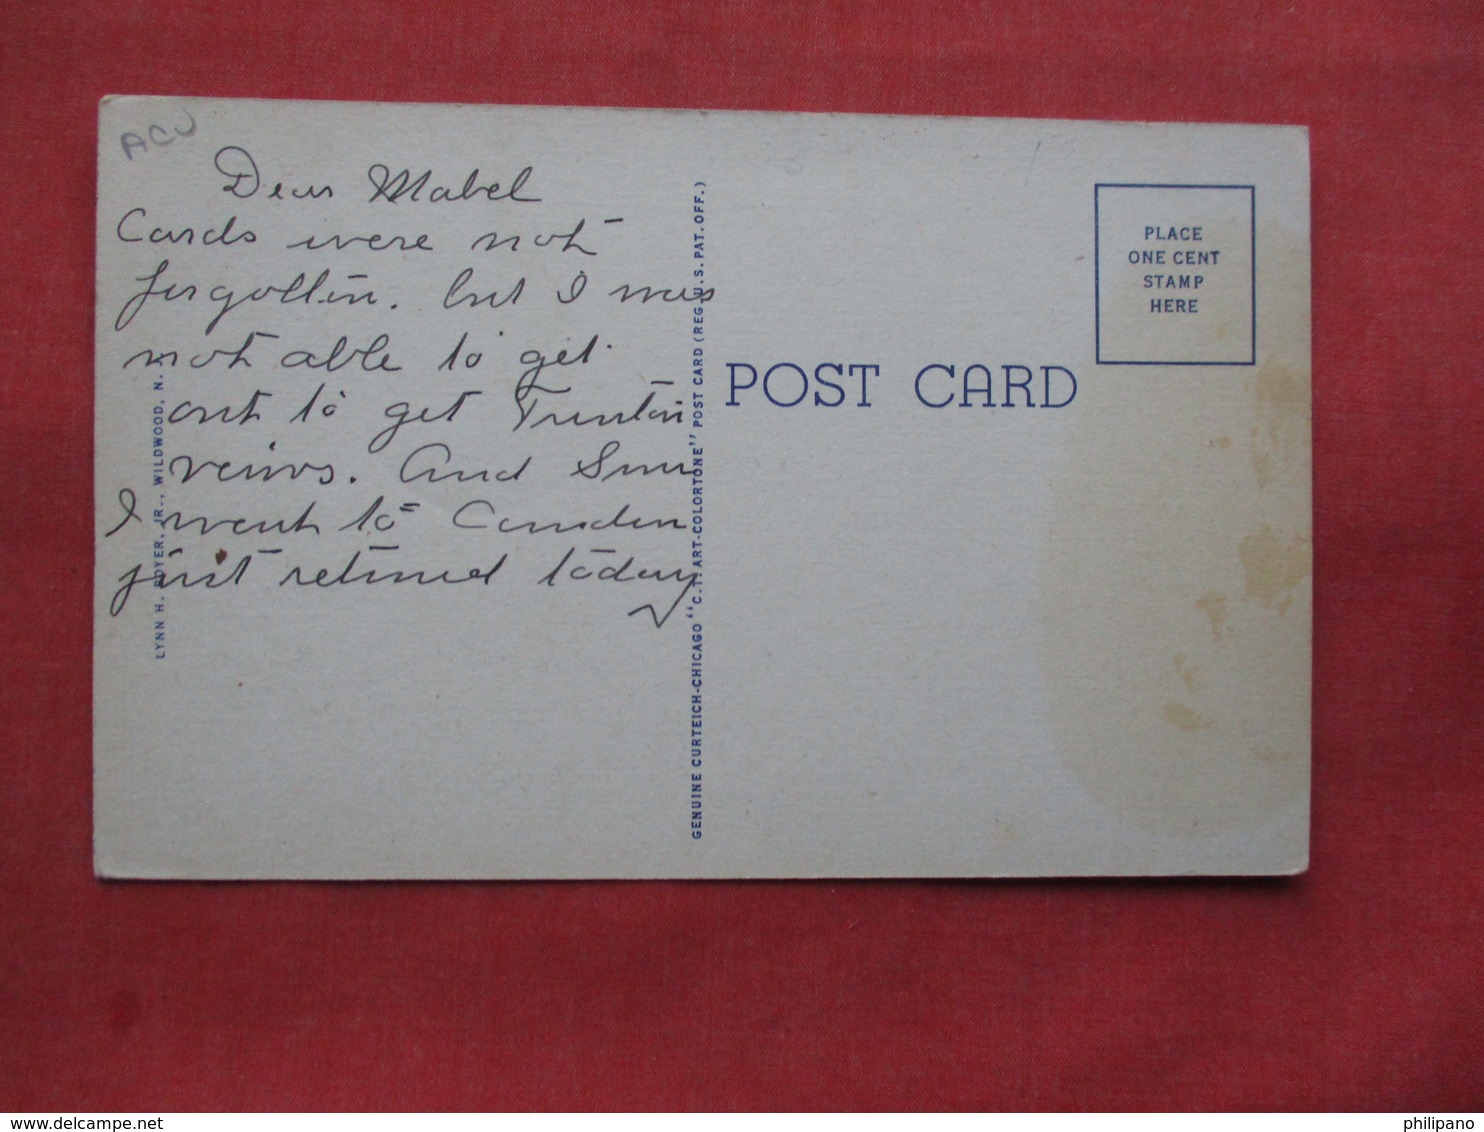 ACU
Dear Mabel
Cards were not
forgotten. but I was
not able to get
out to get Trenton
veiws. And Sun
I went to Camden
just retured today
LYNN H. BOYER, JR., WILDWOOD, N. J.
GENUINE CURTEICH-CHICAGO "C.T. ART-COLORTONE" POST CARD (REG. U.S. PAT. OFF.)
POST CARD
PLACE
ONE CENT
STAMP
HERE
delcampe.net
philipano